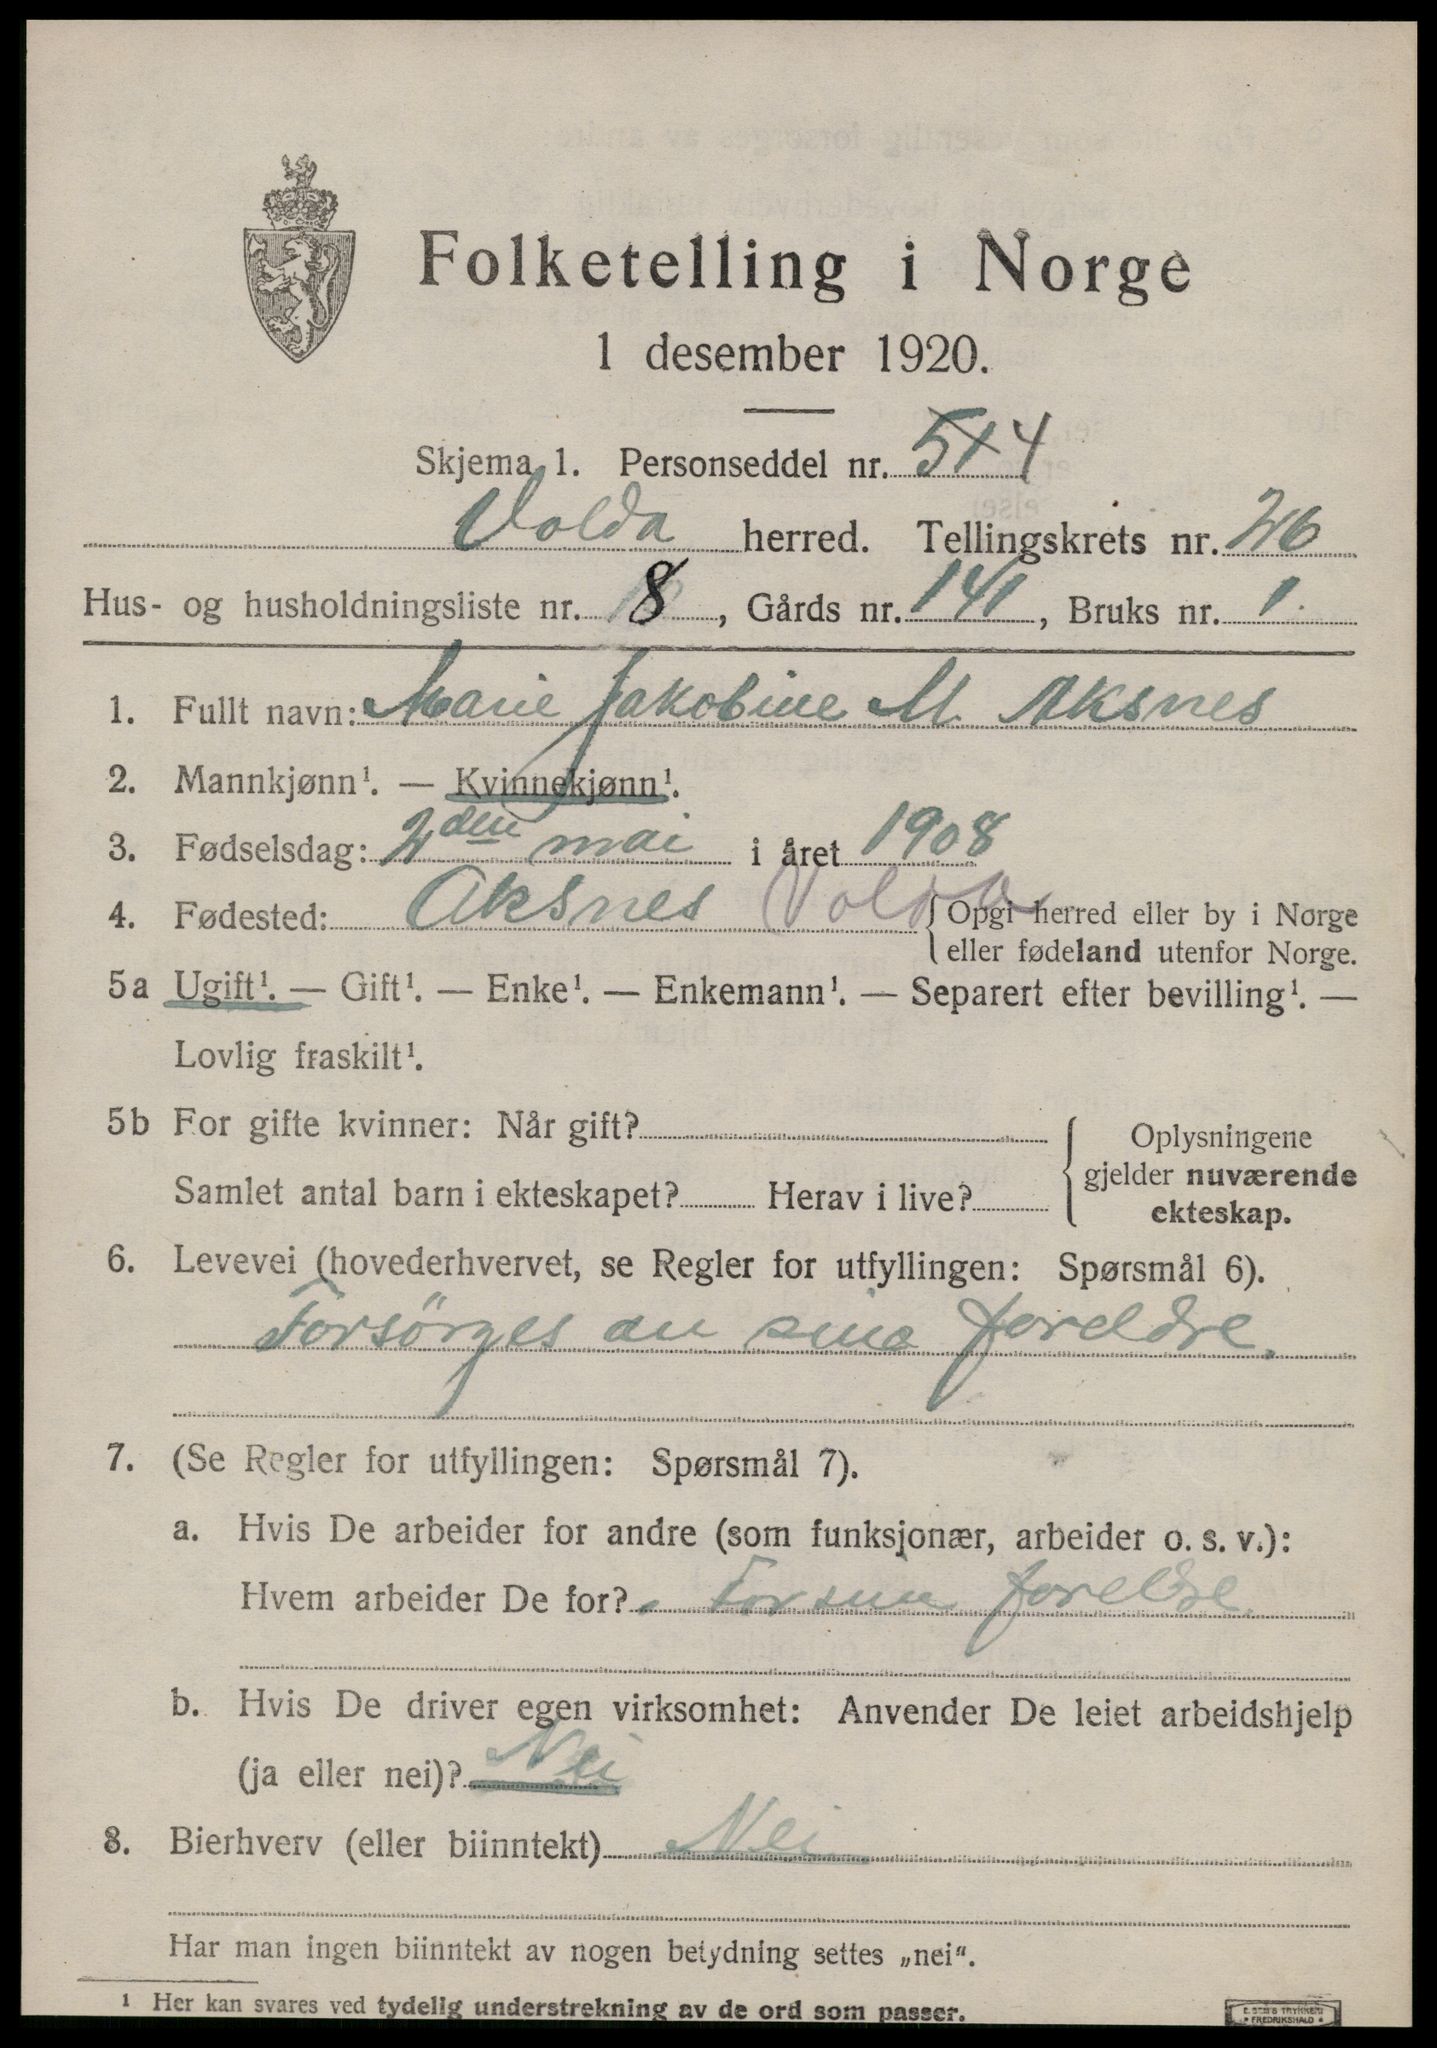 Folketelling i Norge
1 desember 1920.
Skjema 1. Personseddel nr. 4
Volda herred. Tellingskrets nr. 26
Hus- og husholdningsliste nr. 8, Gårds nr. 141, Bruks nr. 1.
1. Fullt navn: Marie Jakobine M. Aksnes
2. Mannkjønn¹. — Kvinnekjønn¹.
3. Fødselsdag: 2den mai i året 1908
4. Fødested: Aksnes Volda { Opgi herred eller by i Norge
eller fødeland utenfor Norge.
5a Ugift¹. — Gift¹. — Enke¹. — Enkemann¹. — Separert efter bevilling¹. —
Lovlig fraskilt¹.
5b For gifte kvinner: Når gift? { Oplysningene
gjelder nuværende
ekteskap.
Samlet antal barn i ekteskapet? Herav i live?
6. Levevei (hovederhvervet, se Regler for utfyllingen: Spørsmål 6).
Forsörges au sine foreldre.
7. (Se Regler for utfyllingen: Spørsmål 7).
a. Hvis De arbeider for andre (som funksjonær, arbeider o. s. v.):
Hvem arbeider De for? For sine foreldre.
b. Hvis De driver egen virksomhet: Anvender De leiet arbeidshjelp
(ja eller nei)? Nei
8. Bierhverv (eller biinntekt) Nei
Har man ingen biinntekt av nogen betydning settes „nei“.
¹ Her kan svares ved tydelig understrekning av de ord som passer.
E. SEM'S TRYKKERI
• FREDRIKSHALD •